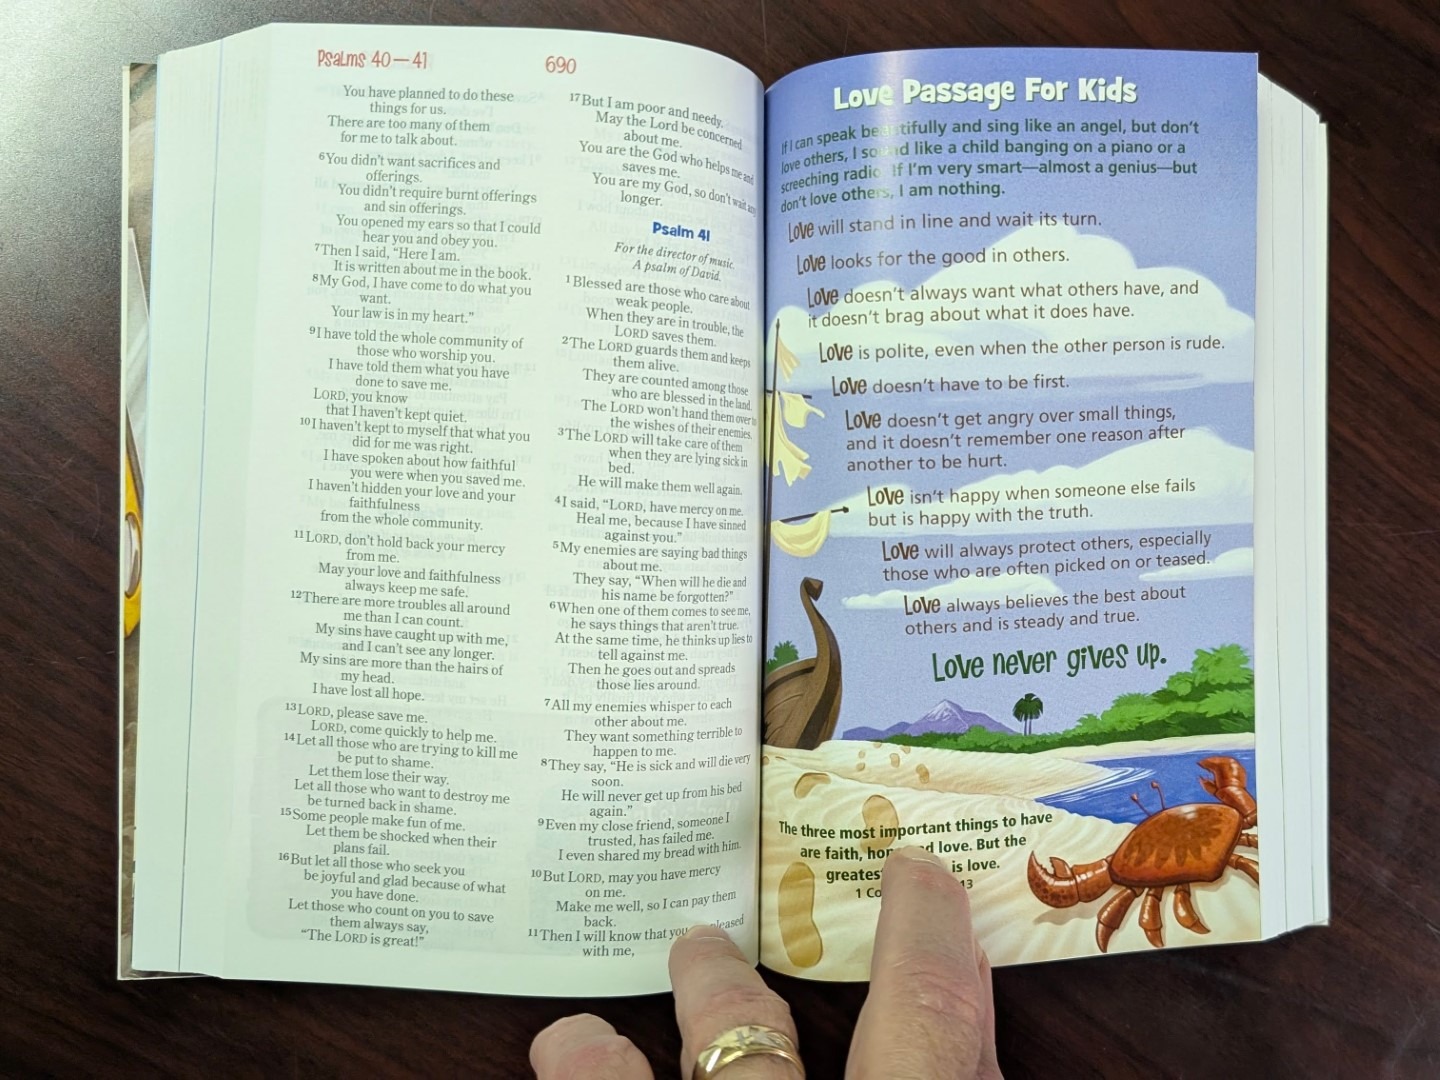 Psalms 40—41
690
You have planned to do these
things for us.
There are too many of them
for me to talk about.
6You didn't want sacrifices and
offerings.
You didn't require burnt offerings
and sin offerings.
You opened my ears so that I could
hear you and obey you.
7Then I said, "Here I am.
It is written about me in the book.
8My God, I have come to do what you
want.
Your law is in my heart."
9I have told the whole community of
those who worship you.
I have told them what you have
done to save me.
LORD, you know
that I haven't kept quiet.
10I haven't kept to myself that what you
did for me was right.
I have spoken about how faithful
you were when you saved me.
I haven't hidden your love and your
faithfulness
from the whole community.
11LORD, don't hold back your mercy
from me.
May your love and faithfulness
always keep me safe.
12There are more troubles all around
me than I can count.
My sins have caught up with me,
and I can't see any longer.
My sins are more than the hairs of
my head.
I have lost all hope.
13LORD, please save me.
LORD, come quickly to help me.
14Let all those who are trying to kill me
be put to shame.
Let them lose their way.
Let all those who want to destroy me
be turned back in shame.
15Some people make fun of me.
Let them be shocked when their
plans fail.
16But let all those who seek you
be joyful and glad because of what
you have done.
Let those who count on you to save
them always say,
"The LORD is great!"
17But I am poor and needy.
May the Lord be concerned
about me.
You are the God who helps me and
saves me.
You are my God, so don't wait any
longer.
Psalm 41
For the director of music.
A psalm of David.
1Blessed are those who care about
weak people.
When they are in trouble, the
LORD saves them.
2The LORD guards them and keeps
them alive.
They are counted among those
who are blessed in the land.
The LORD won't hand them over to
the wishes of their enemies.
3The LORD will take care of them
when they are lying sick in
bed.
He will make them well again.
4I said, "LORD, have mercy on me.
Heal me, because I have sinned
against you."
5My enemies are saying bad things
about me.
They say, "When will he die and
his name be forgotten?"
6When one of them comes to see me,
he says things that aren't true.
At the same time, he thinks up lies to
tell against me.
Then he goes out and spreads
those lies around.
7All my enemies whisper to each
other about me.
They want something terrible to
happen to me.
8They say, "He is sick and will die very
soon.
He will never get up from his bed
again."
9Even my close friend, someone I
trusted, has failed me.
I even shared my bread with him.
10But LORD, may you have mercy
on me.
Make me well, so I can pay them
back.
11Then I will know that you pleased
with me,
Love Passage For Kids
If I can speak beautifully and sing like an angel, but don't
love others, I sound like a child banging on a piano or a
screeching radio. If I'm very smart—almost a genius—but
don't love others, I am nothing.
Love will stand in line and wait its turn.
Love looks for the good in others.
Love doesn't always want what others have, and
it doesn't brag about what it does have.
Love is polite, even when the other person is rude.
Love doesn't have to be first.
Love doesn't get angry over small things,
and it doesn't remember one reason after
another to be hurt.
Love isn't happy when someone else fails
but is happy with the truth.
Love will always protect others, especially
those who are often picked on or teased.
Love always believes the best about
others and is steady and true.
Love never gives up.
The three most important things to have
are faith, love. But the
is love.
1 13